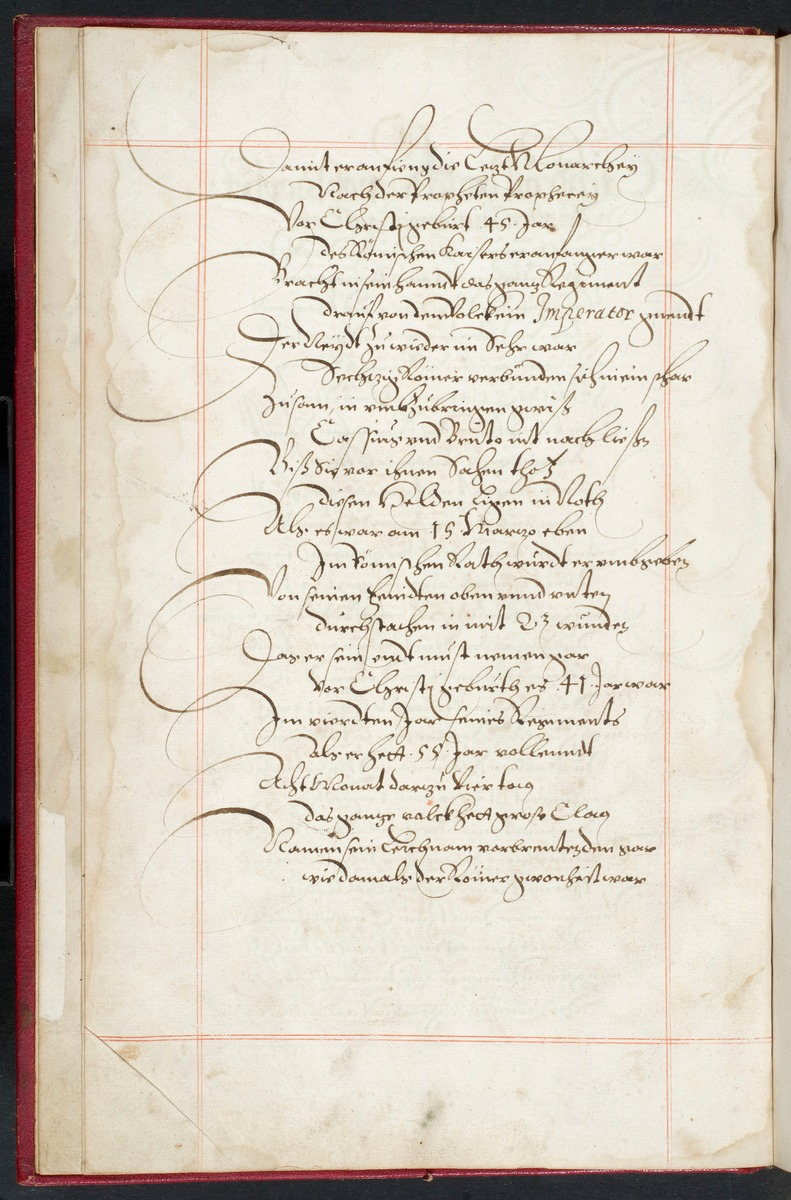 Damit er anfieng die Letzt Monarchey
Nach der Propheten Prophecey
Vor Christj geburt .45. Jar
des Römischen Kaisers er anfanger war
Bracht in sein handt das gantz Regiment
drauf von dem Volck ein Imperator gnendt
Der Neydt zu wieder im Sehr war
Sechtzig Römer verbunden sich in ein schar
Zusam, in umbzubringen gwiß
Cassius und Bruto nit nachließ
Biß Sie vor ihnen Sahen thot
diesen Helden ligen in Noth
Als es war am 15 Martzo eben
Im Römischen Rath wurdt er umbgeben
Von seinen feindten oben unnd unten
durchstachen in mit 23 wunden
Das er sein endt must nemen gar
Vor Christj geburth es .41. Jar war
Im vierdten Jar seines Regiments
als er hett .55. Jar vollendt
Acht Monat darzu Vier tag
das gantze volck hett grosse Clag
Namen sein Leichnam verbrenten den gar
wie damals der Römer gwonheit war